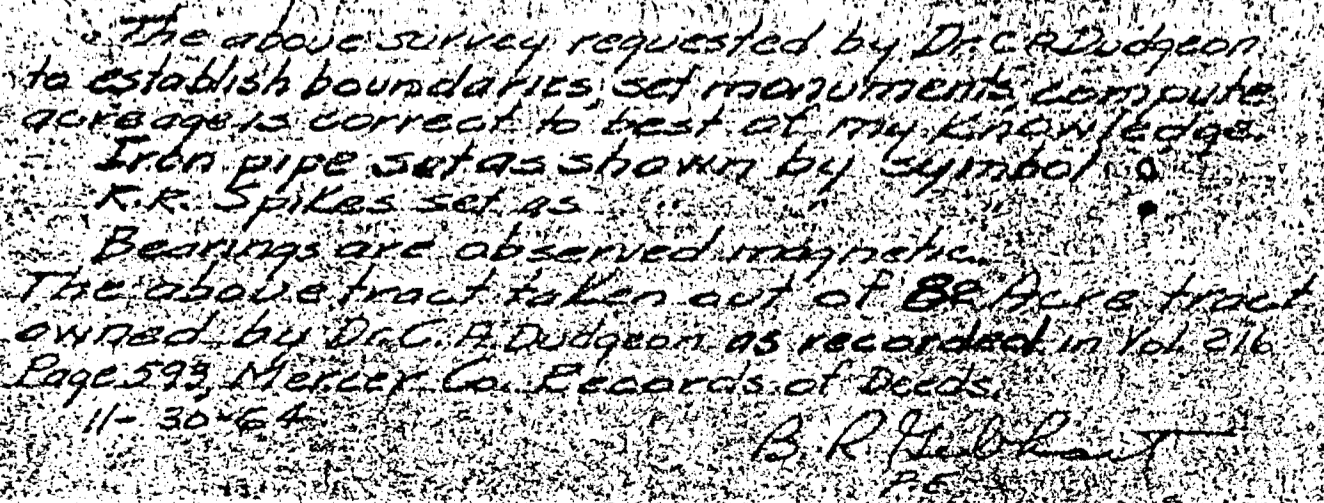 The above survey requested by Dr. C A Dudgeon
to establish boundaries, set monuments, compute
acreage is correct to best of my Knowledge.
Iron pipe set as shown by symbol o
R.R. Spikes set as " " " •
Bearings are observed magnetic.
The above tract taken out of 82 Acre tract
owned by Dr. C. A Dudgeon as recorded in Vol. 216
Page 593, Mercer Co. Records of Deeds.
11-30-64
B. R. Gebhart
P.E.